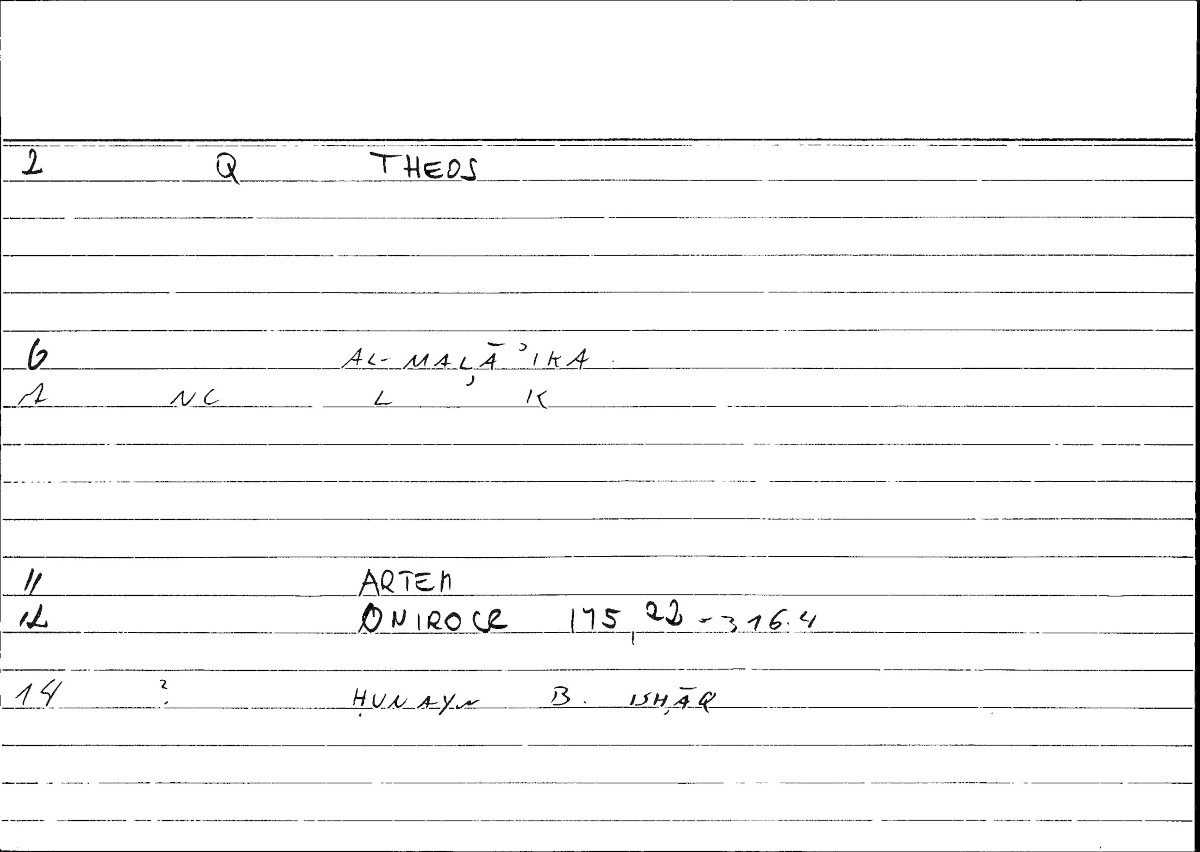 2 Q THEOS
6 AL-MALĀʾIKA
1 NC L K
11 ARTEM
12 ONIROCR 175,22-316.4
14 ? ḤUNAYN B. ISḤĀQ